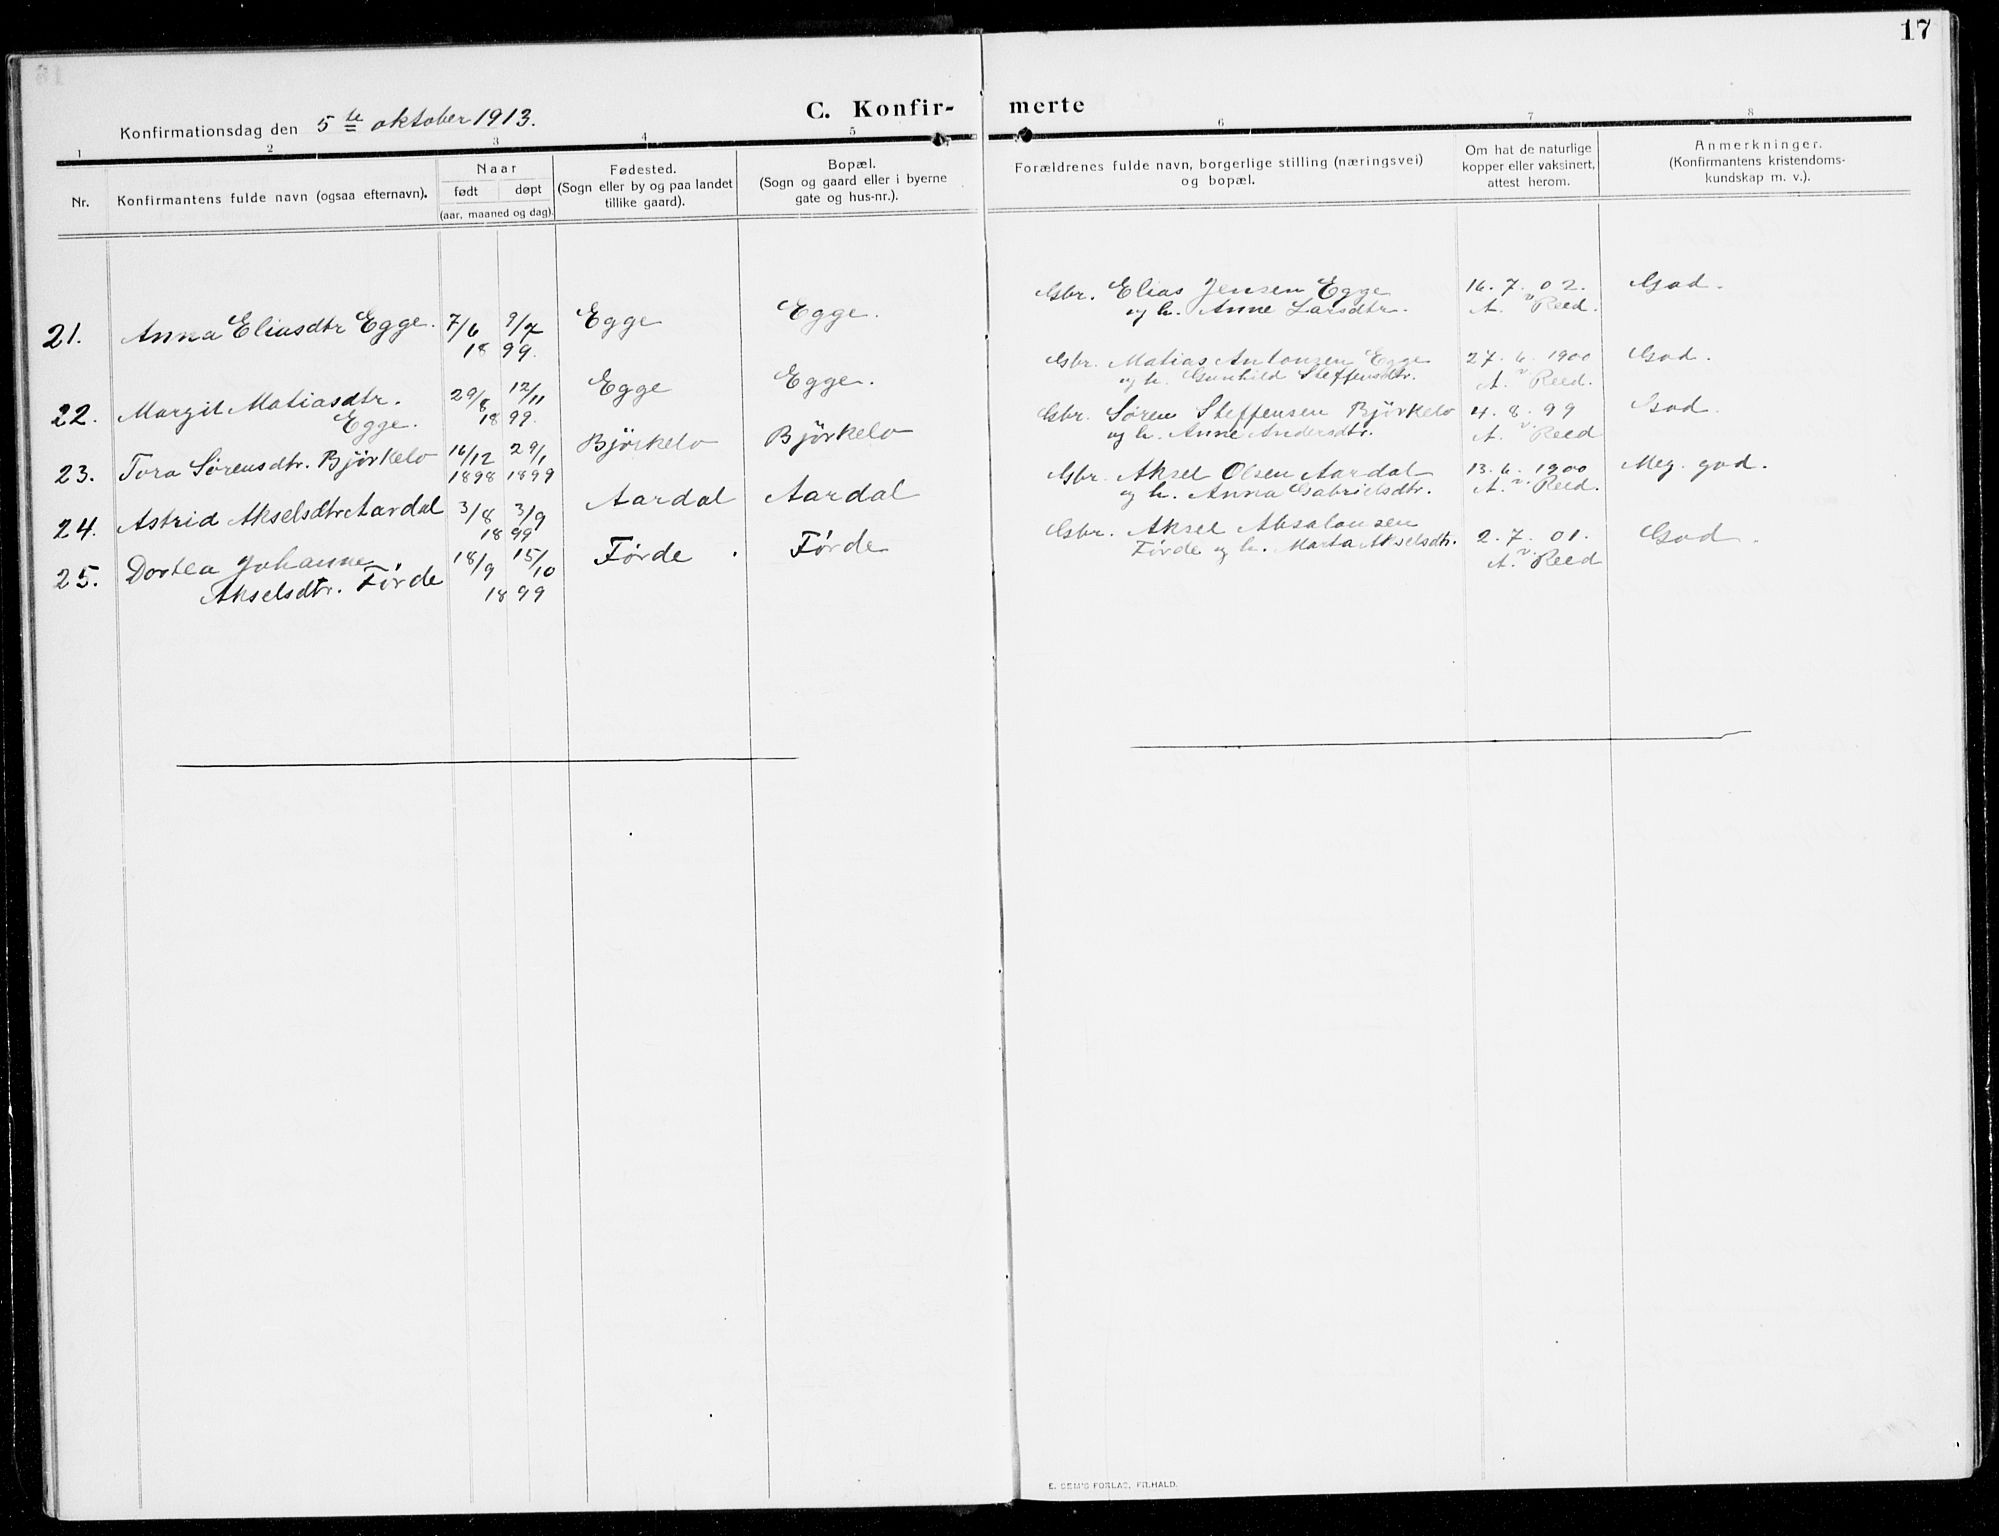 17
Konfirmationsdag den 5te oktober 1913.
C. Konfir- merte
1 2 3 4 5 6 7 8
Nr.
Konfirmantens fulde navn (ogsaa efternavn).
Naar
født døpt
(aar, maaned og dag).
Fødested.
(Sogn eller by og paa landet
tillike gaard).
Bopæl.
(Sogn og gaard eller i byerne
gate og hus-nr.).
Forældrenes fulde navn, borgerlige stilling (næringsvei)
og bopæl.
Om hat de naturlige
kopper eller vaksinert,
attest herom.
Anmerkninger.
(Konfirmantens kristendoms-
kundskap m. v.).
21. Anna Eliasdtr Egge. 7/6 9/7 Egge Egge. Gbr. Elias Jensen Egge 16. 7. 02. God.
18 99. og h. Anne Larsdtr. A. v Reed.
22. Margit Matiasdtr. 29/8 12/11 Egge Egge. Gbr. Matias Antonsen Egge 27. 6. 1900 God.
Egge. 18 99. og h. Gunhild Steffensdtr. A. v Reed.
23. Tora Sørensdtr. Bjørkelo 16/12 29/1 Bjørkelo Bjørkelo Gbr. Søren Steffensen Bjørkelo 4. 8. 99 God.
1898 1899 og h. Anne Andersdtr. A. v. Reed
24. Astrid Akselsdtr Aardal 3/8 3/9 Aardal Aardal Gbr. Aksel Olsen Aardal 13. 6. 1900 Meg. god.
18 99 og h. Anna Gabrielsdtr. A. v Reed.
25. Dortea Johanne 18/9 15/10 Førde . Førde Gbr. Aksel Absalonsen 2. 7. 01. God.
Akselsdtr. Førde 18 99 Førde og h. Marta Akselsdtr. A. v. Reed
E. SEM'S FORLAG, FR.HALD.